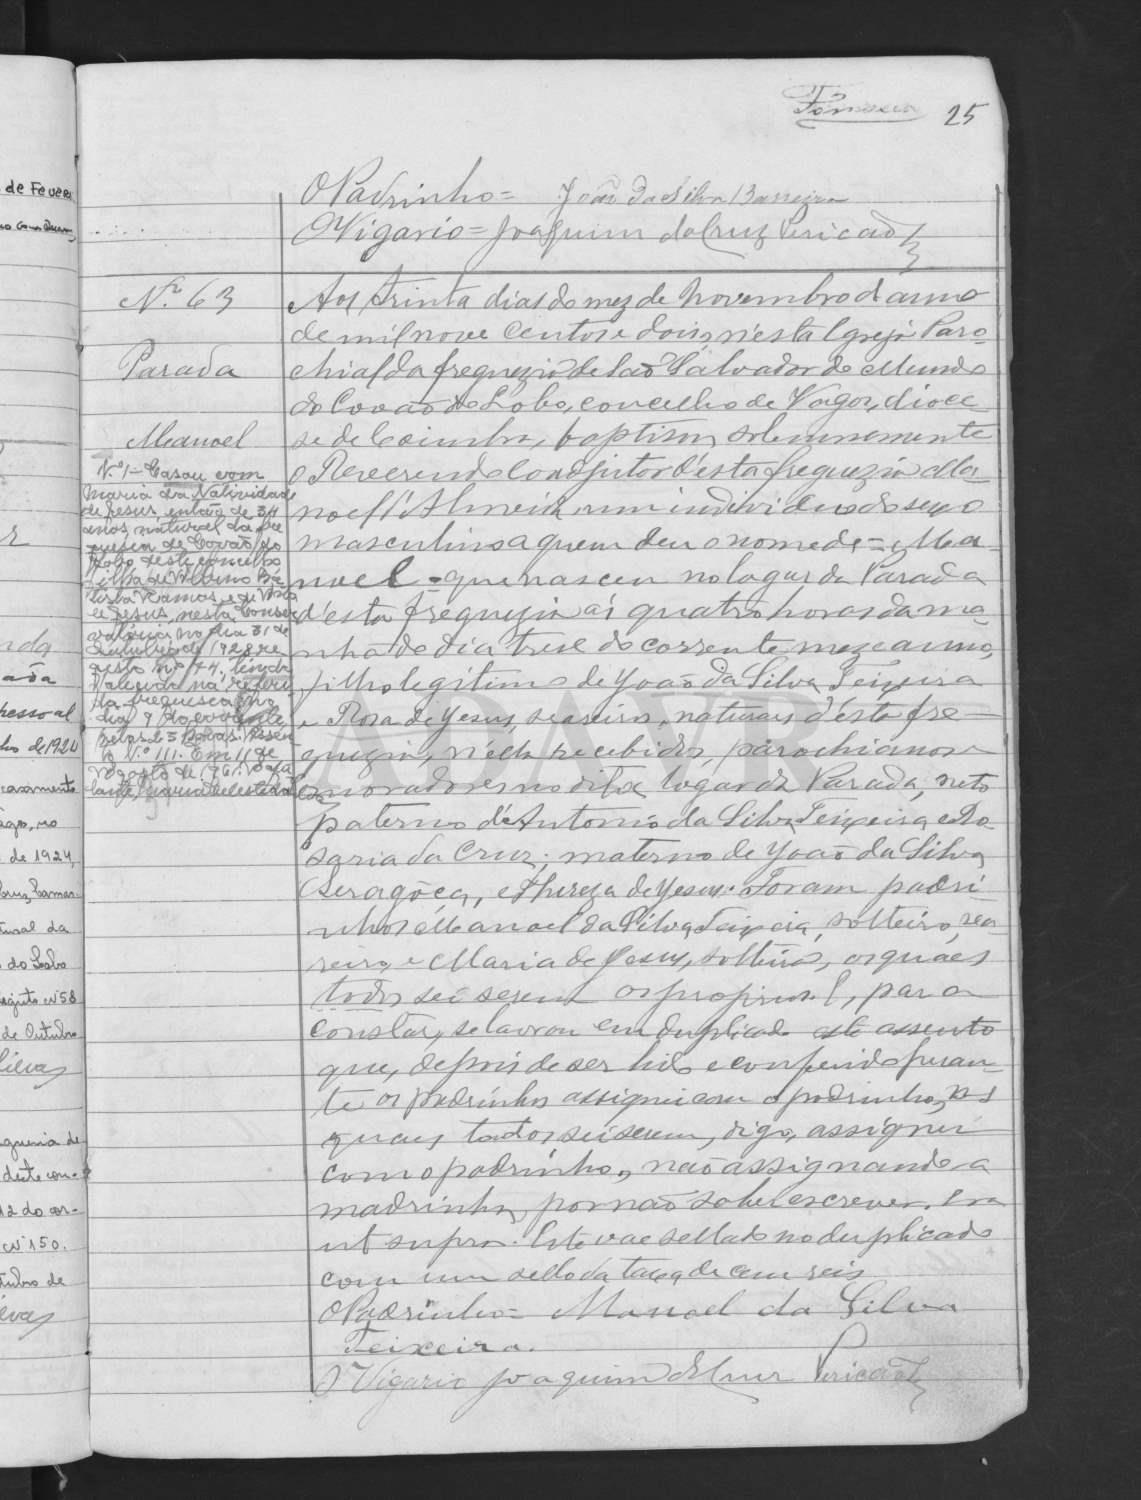 25
O Padrinho = João da Silva Barreira
O Vigario = Joaquim da Cruz Pericão
N.º 63
Parada
Manoel
Aos trinta dias do mez de Novembro do anno
de mil nove centos e dois, n'esta Igreja Paro-
chial da freguezia de São Salvador do Mundo
do Covão do Lobo, concelho de Vagos, dioce-
se de Coimbra, baptisou solemnemente
o Reverendo Coadjutor d'esta freguezia Ma-
noel d'Almeida um individuo do sexo
masculino a quem deu o nome de = Ma-
noel = que nasceu no logar da Parada
d'esta freguezia ás quatro horas da ma-
nhã do dia treze do corrente mez e anno,
filho legitimo de João da Silva Teixeira
e Rosa de Jesus, seareiros, naturaes d'esta fre-
guezia, n'ella recebidos, parochianos e
moradores no dito logar da Parada, neto
paterno d'Antonio da Silva Teixeira e Ro-
saria da Cruz; materno de João da Silva
e Thereza de Jesus. Foram padri-
nhos Manoel da Silva Teixeira, solteiro, sea-
reiro, e Maria de Jesus, solteira, os quaes
todos sei serem os proprios. E, para
constar, se lavrou em duplicado este assento
que, depois de ser lido e conferido peran-
te os padrinhos assignei com o padrinho, os
quaes todos sei serem, digo, assignei
com o padrinho, não assignando a
madrinha por não saber escrever. Era
ut supra. Este vae sellado no duplicado
com um sello da taxa de cem reis
O Padrinho = Manoel da Silva
Teixeira.
O Vigario Joaquim da Cruz Pericão
N.º 1 - Casou com
Maria da Natividade
de Jesus, então de 34
anos, natural da fre
guesia de Covão do
Lobo deste concelho
filha de
Ramos e de
de Jesus, nesta Conser
vatória no dia 31 de
de 1928
nº 44, tendo
falecido na referi
da freguesia no
dia 9 do corrente
pelas 23 horas. Assen
to N.º 111. Em 11 de
Agosto de
de Fevere
nda
ada
pessoal
ho de 1924
casamento
de 1924,
Cruz
tural da
do Lobo
nº 58
de Outubro
guesia de
deste con-
12 do cor-
nº 150.
tubro de
ADAVR